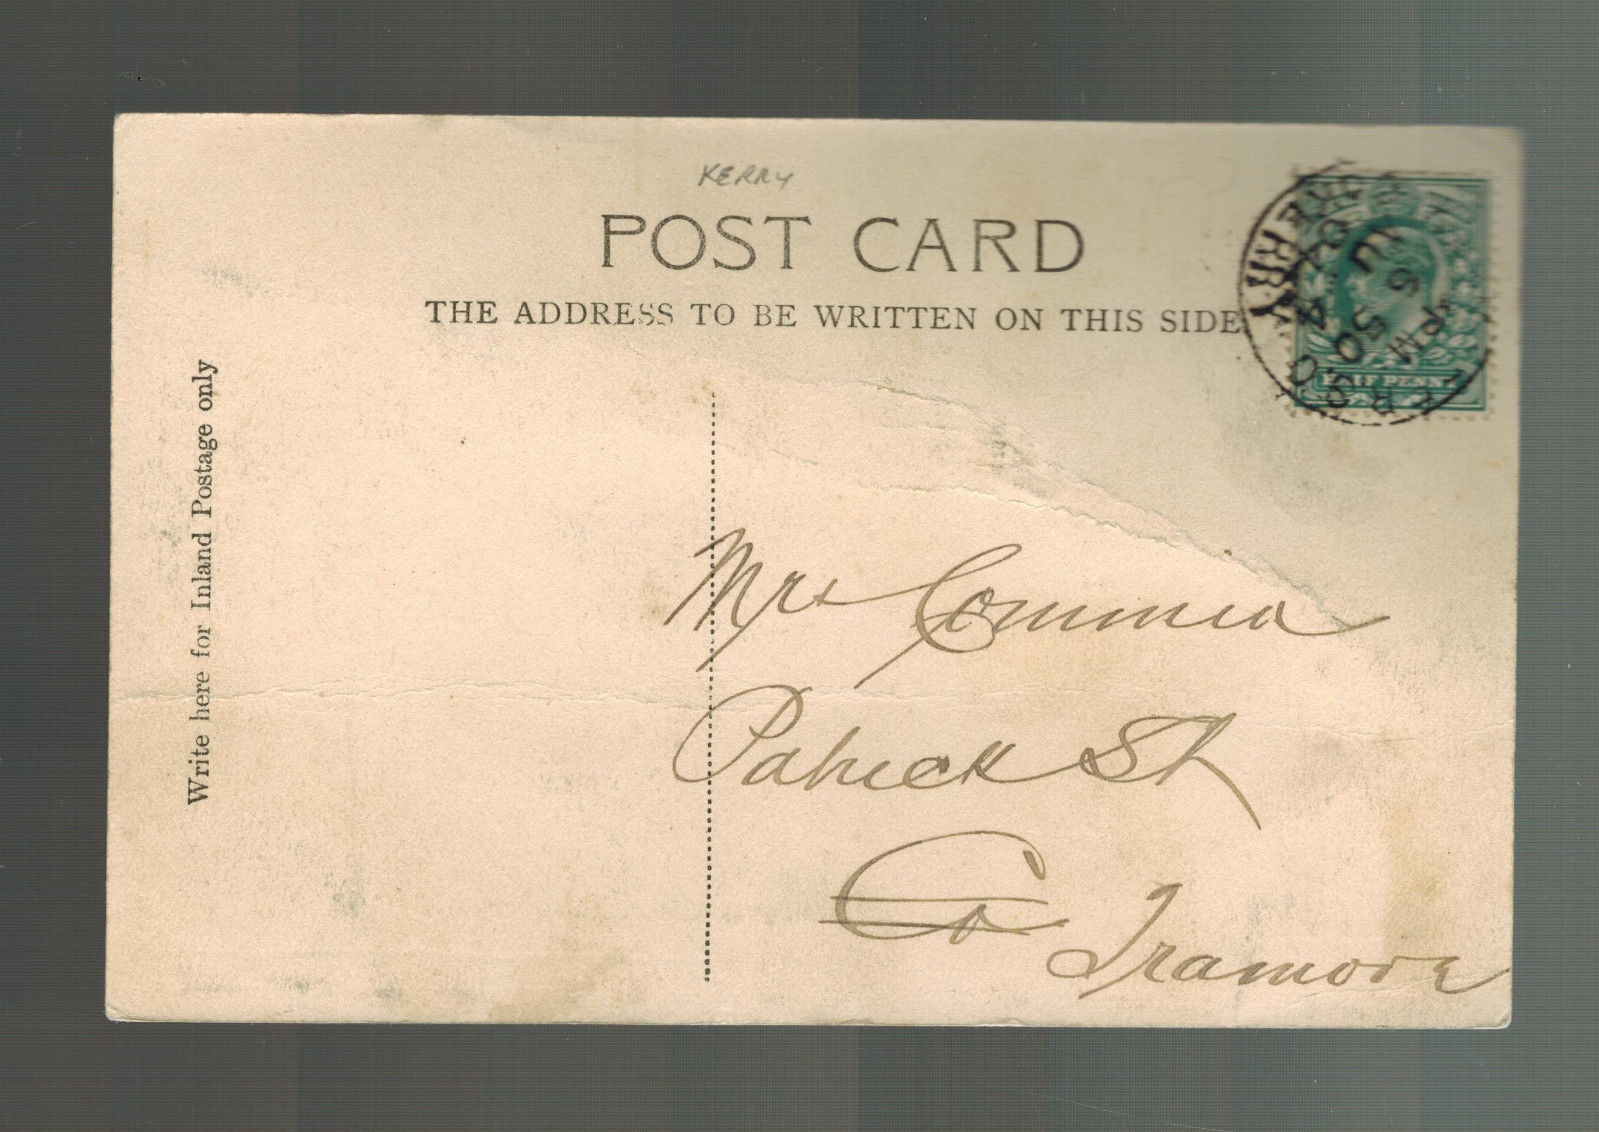 KERRY
POST CARD
THE ADDRESS TO BE WRITTEN ON THIS SIDE
Write here for Inland Postage only
KERRY
JU 30
04
5 PM
HALF PENNY
Mrs
Patrick St
Co Tramore